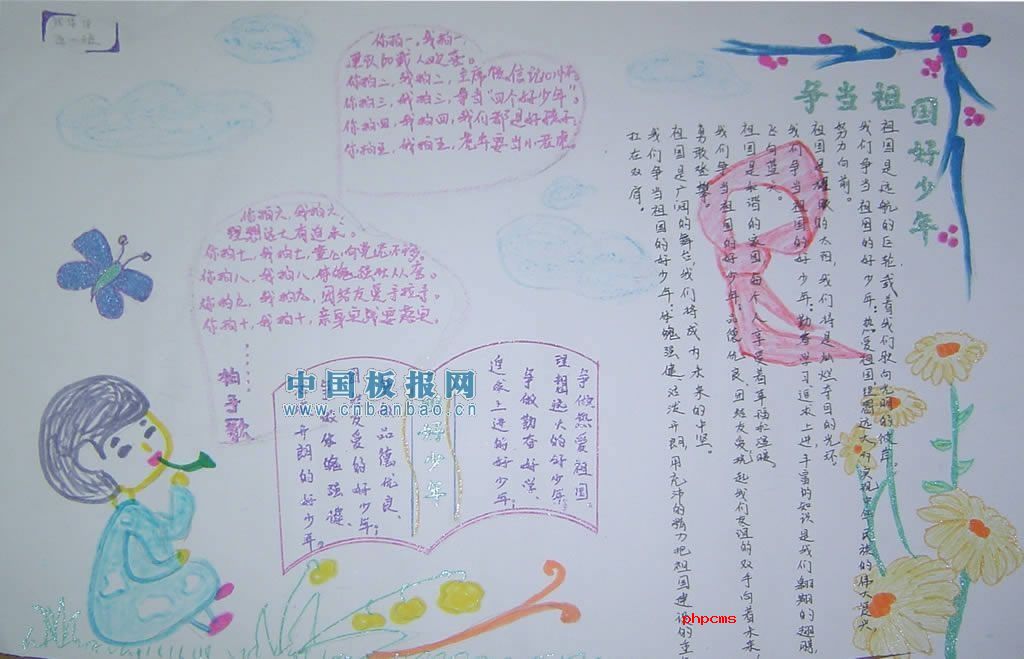 你拍一,我拍一,
你拍二,我拍二,
你拍三,我拍三,争当“四个好少年”。
你拍四,我拍四,我们都是好孩子;
你拍五,我拍五,
你拍六,我拍六,
理想远大有追求。
你拍七,我拍七,
你拍八,我拍八,体魄强壮人人夸。
你拍九,我拍九,团结友爱手拉手。
你拍十,我拍十,
拍手歌
中国板报网
www.cnbanbao.cn
争做热爱祖国、
理想远大的好少年;
争做勤奋好学、
追求上进的好少年;
好少年
品德优良、
友爱的好少年;
体魄强健、
开朗的好少年。
争当祖国好少年
祖国是远航的巨轮,载着我们驶向光明的彼岸。
我们争当祖国的好少年:热爱祖国,理想远大,
努力向前。
祖国是耀眼的太阳,我们将是灿烂夺目的光环。
我们争当祖国的好少年:勤奋学习,追求上进,丰富的知识是我们翱翔的翅膀,
飞向蓝天。
祖国是和谐的家园,每个人享受着幸福和温暖。
我们争当祖国的好少年:品德优良、团结友爱,挽起我们友谊的双手向着未来,
勇敢登攀。
祖国是广阔的舞台,我们将成为未来的中坚。
我们争当祖国的好少年:体魄强健、活泼开朗,用充沛的精力把祖国建设的重
扛在双肩。
phpcms